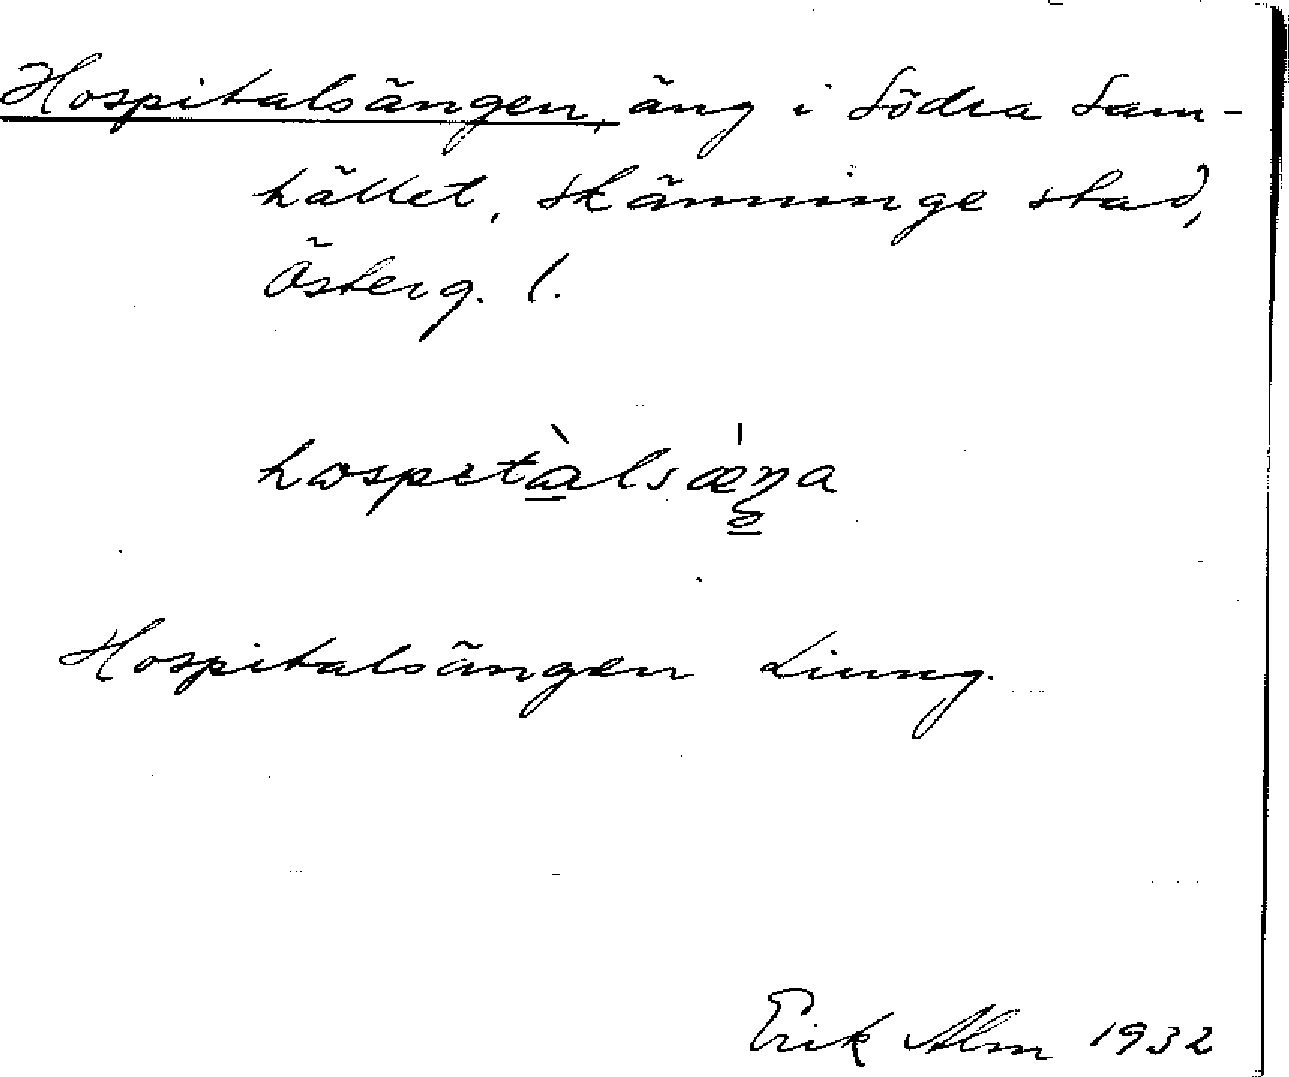 Hospitalsängen, äng i Södra Sam-
hället, Skänninge stad,
Österg. l.
hospitàlsæ̀ŋa
Hospitalsängen Liung.
Erik Alm 1932